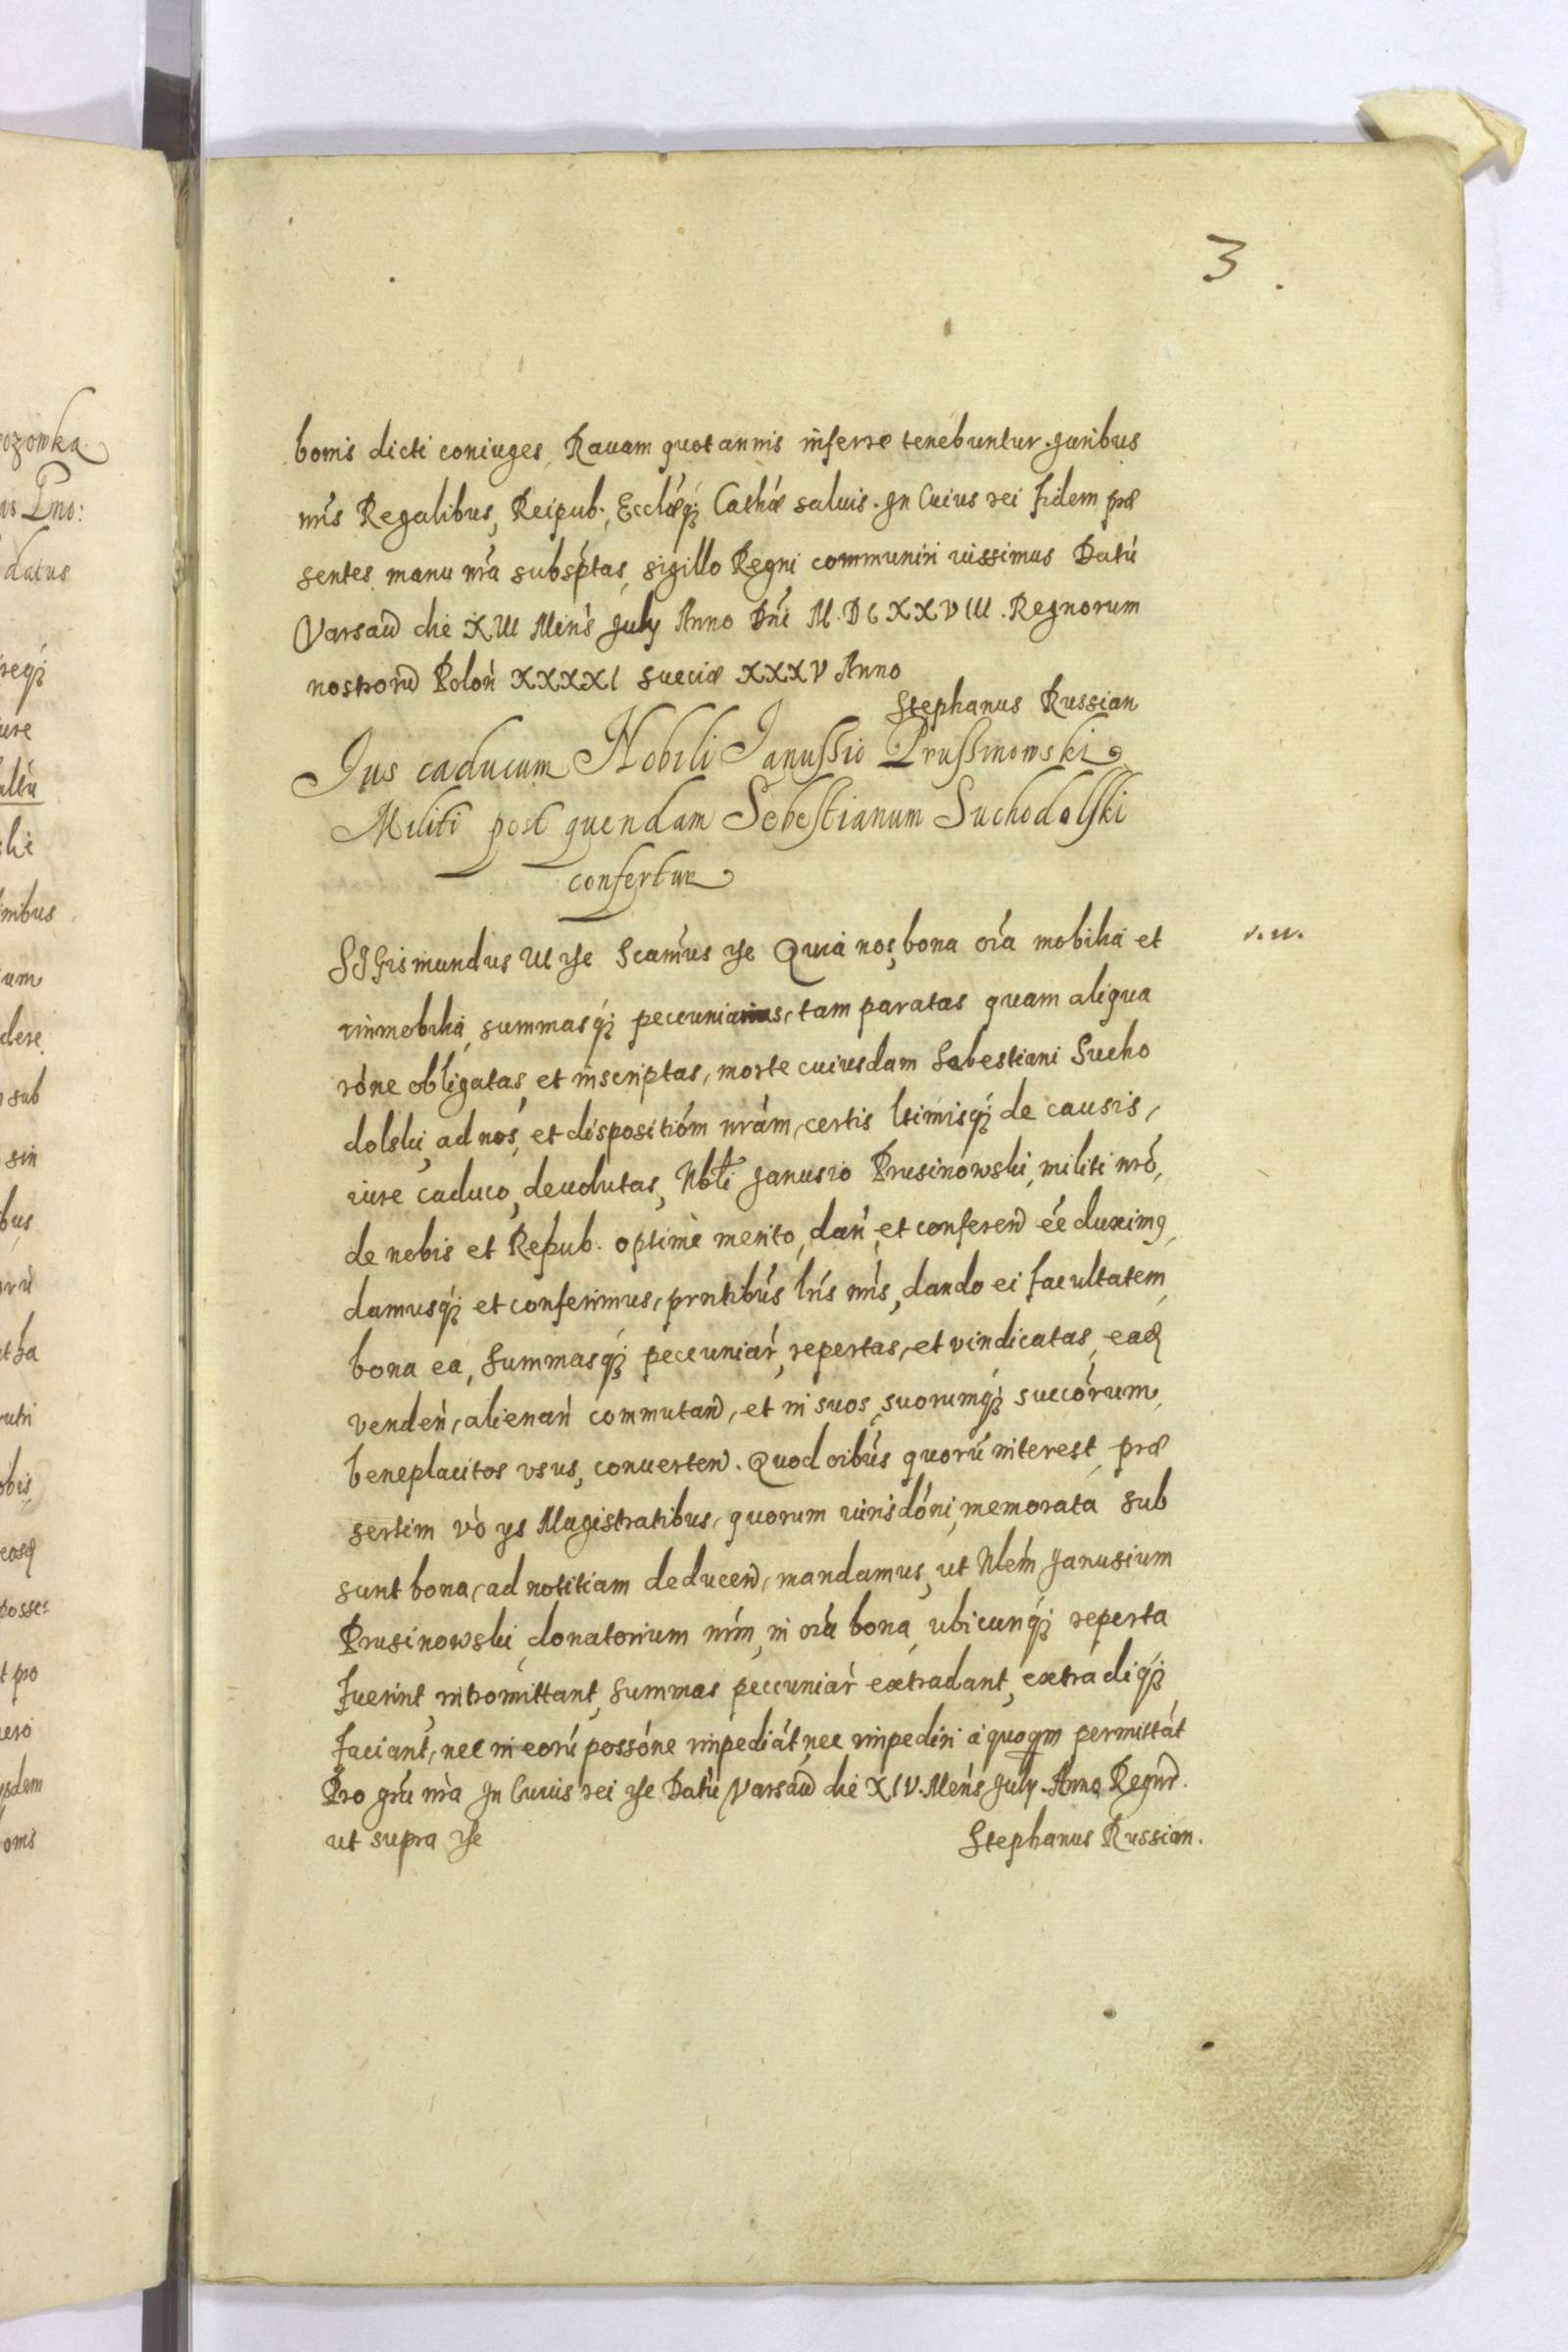 3.
bonis dicti coniuges, Rauam quotannis inferre tenebuntur. Juribus
nris Regalibus, Reipub:, Ecclæq; Cathæ saluis. In Cuius rei fidem præ
sentes manu nra subsptas, sigillo Regni communiri iussimus Datu
Varsaw die XIII Mens July Anno Dni M.DCXXVIII. Regnorum
nostrorw Polon XXXXI Sueciæ XXXV Anno
Stephanus Russian
Jus caducum Nobili Janussio Prussinowski
Militi post quendam Sebestianum Suchodolski
confertur
SIGismundus III ꝛc Scamus ꝛc Quia nos, bona oia mobilia et
v.w.
immobilia, summasq; peccuniarias, tam paratas quam aliqua
rone obligatas, et inscriptas, morte cuiusdam Sebestiani Sucho
dolski, ad nos, et dispositiom nram, certis ltimisq; de causis,
iure caduco, deuolutas, Nbli Janusio Prusinowski, militi nro,
de nobis et Repub. optime merito, dan, et conferen ee duximg,
damusq; et conferimus, prntibus lris nris, dando ei facultatem,
bona ea, summasq; peccuniar, repertas, et vindicatas, eaq
venden, alienan commutan, et in suos, suorumq; succorum,
beneplacitos vsus, conuerten. Quod oibus quoru interest, præ
sertim vo ys Magistratibus, quorum iurisdoni, memorata sub
sunt bona, ad notitiam deducen, mandamus, ut Nlem Janusium
Prusinowski, donatorium nrm, in oia bona, ubicunq; reperta
fuerint, intromittant, summas peccuniar extradant, extradiq;
faciant, nec in eoru possone impediat, nec impediri a quoqm permittat
Pro gra nra In Cuius rei ꝛc Datu Varsaw die XIV. Mens July. Anno Regnr.
ut supra ꝛc
Stephanus Russian.